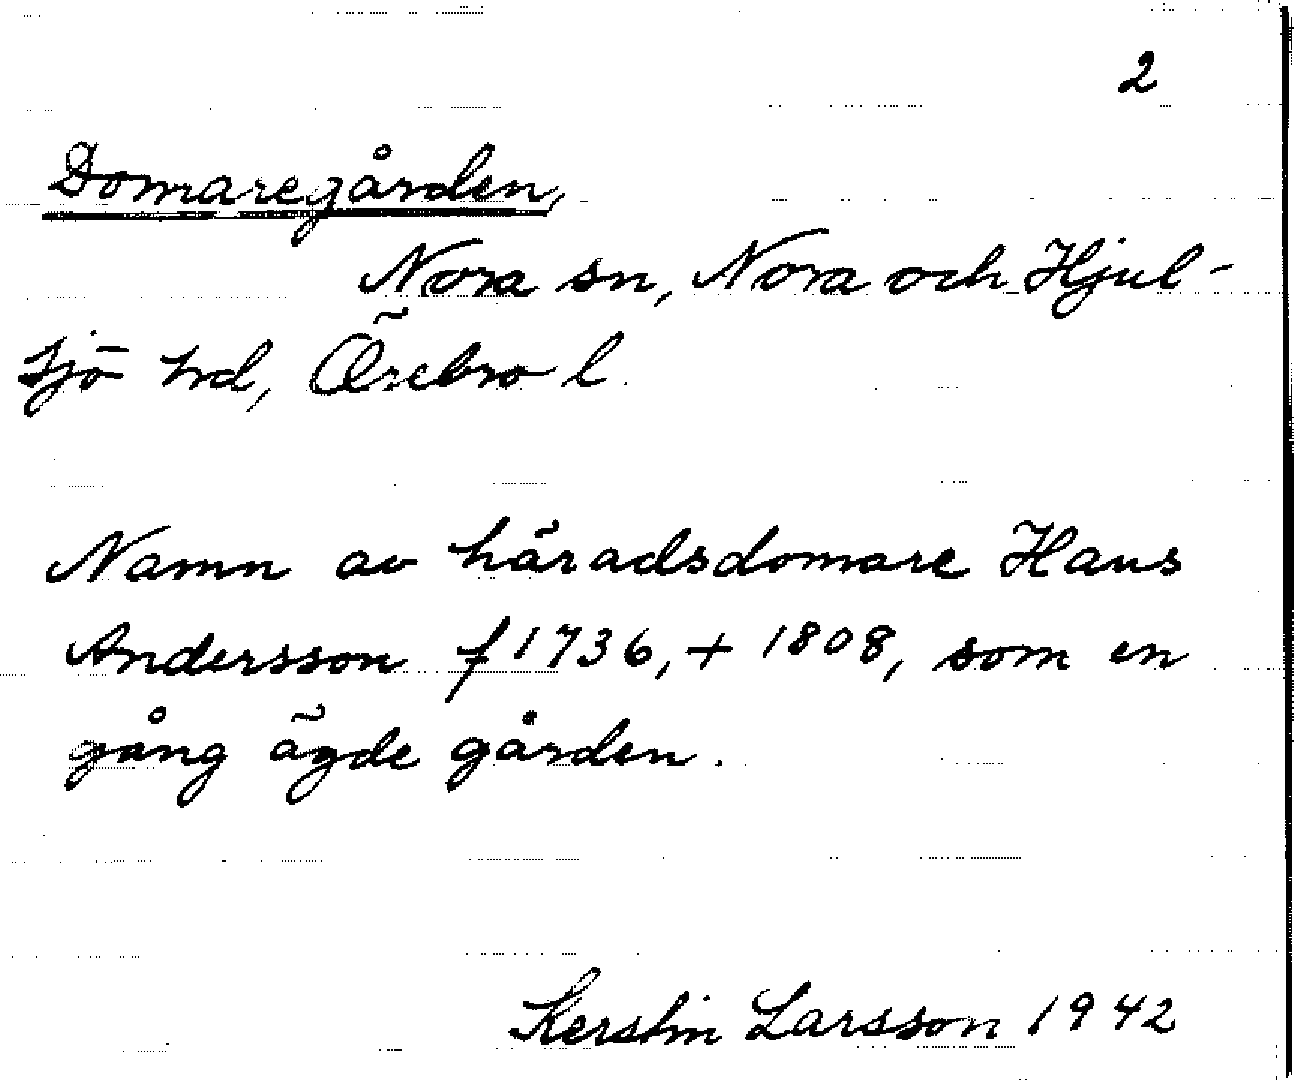 2
Domaregården,
Nora sn, Nora och Hjul-
sjö hd, Örebro l.
Namn av häradsdomare Hans
Andersson f 1736, + 1808, som en
gång ägde gården.
Kerstin Larsson 1942